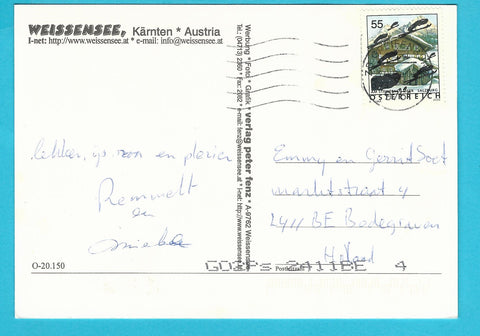 WEISSENSEE, Kärnten * Austria
I-net: http://www.weissensee.at * e-mail: info@weissensee.at
Werbung * Foto * Grafik * verlag peter fenz * A-9762 Weissensee
Tel.: (04713) 2360 * Fax: 2892 * e-mail: fenz@weissensee.at * I-net: http://www.weissensee.at
55
SALZBURG
ÖSTERREICH
lekker, ijs zon en plezier
Remmelt
en
Emmy en Gerrit Soet
marktstraat 4
2411 BE Bodegraven
Holland
O-20.150
Postkarte
2411BE 4